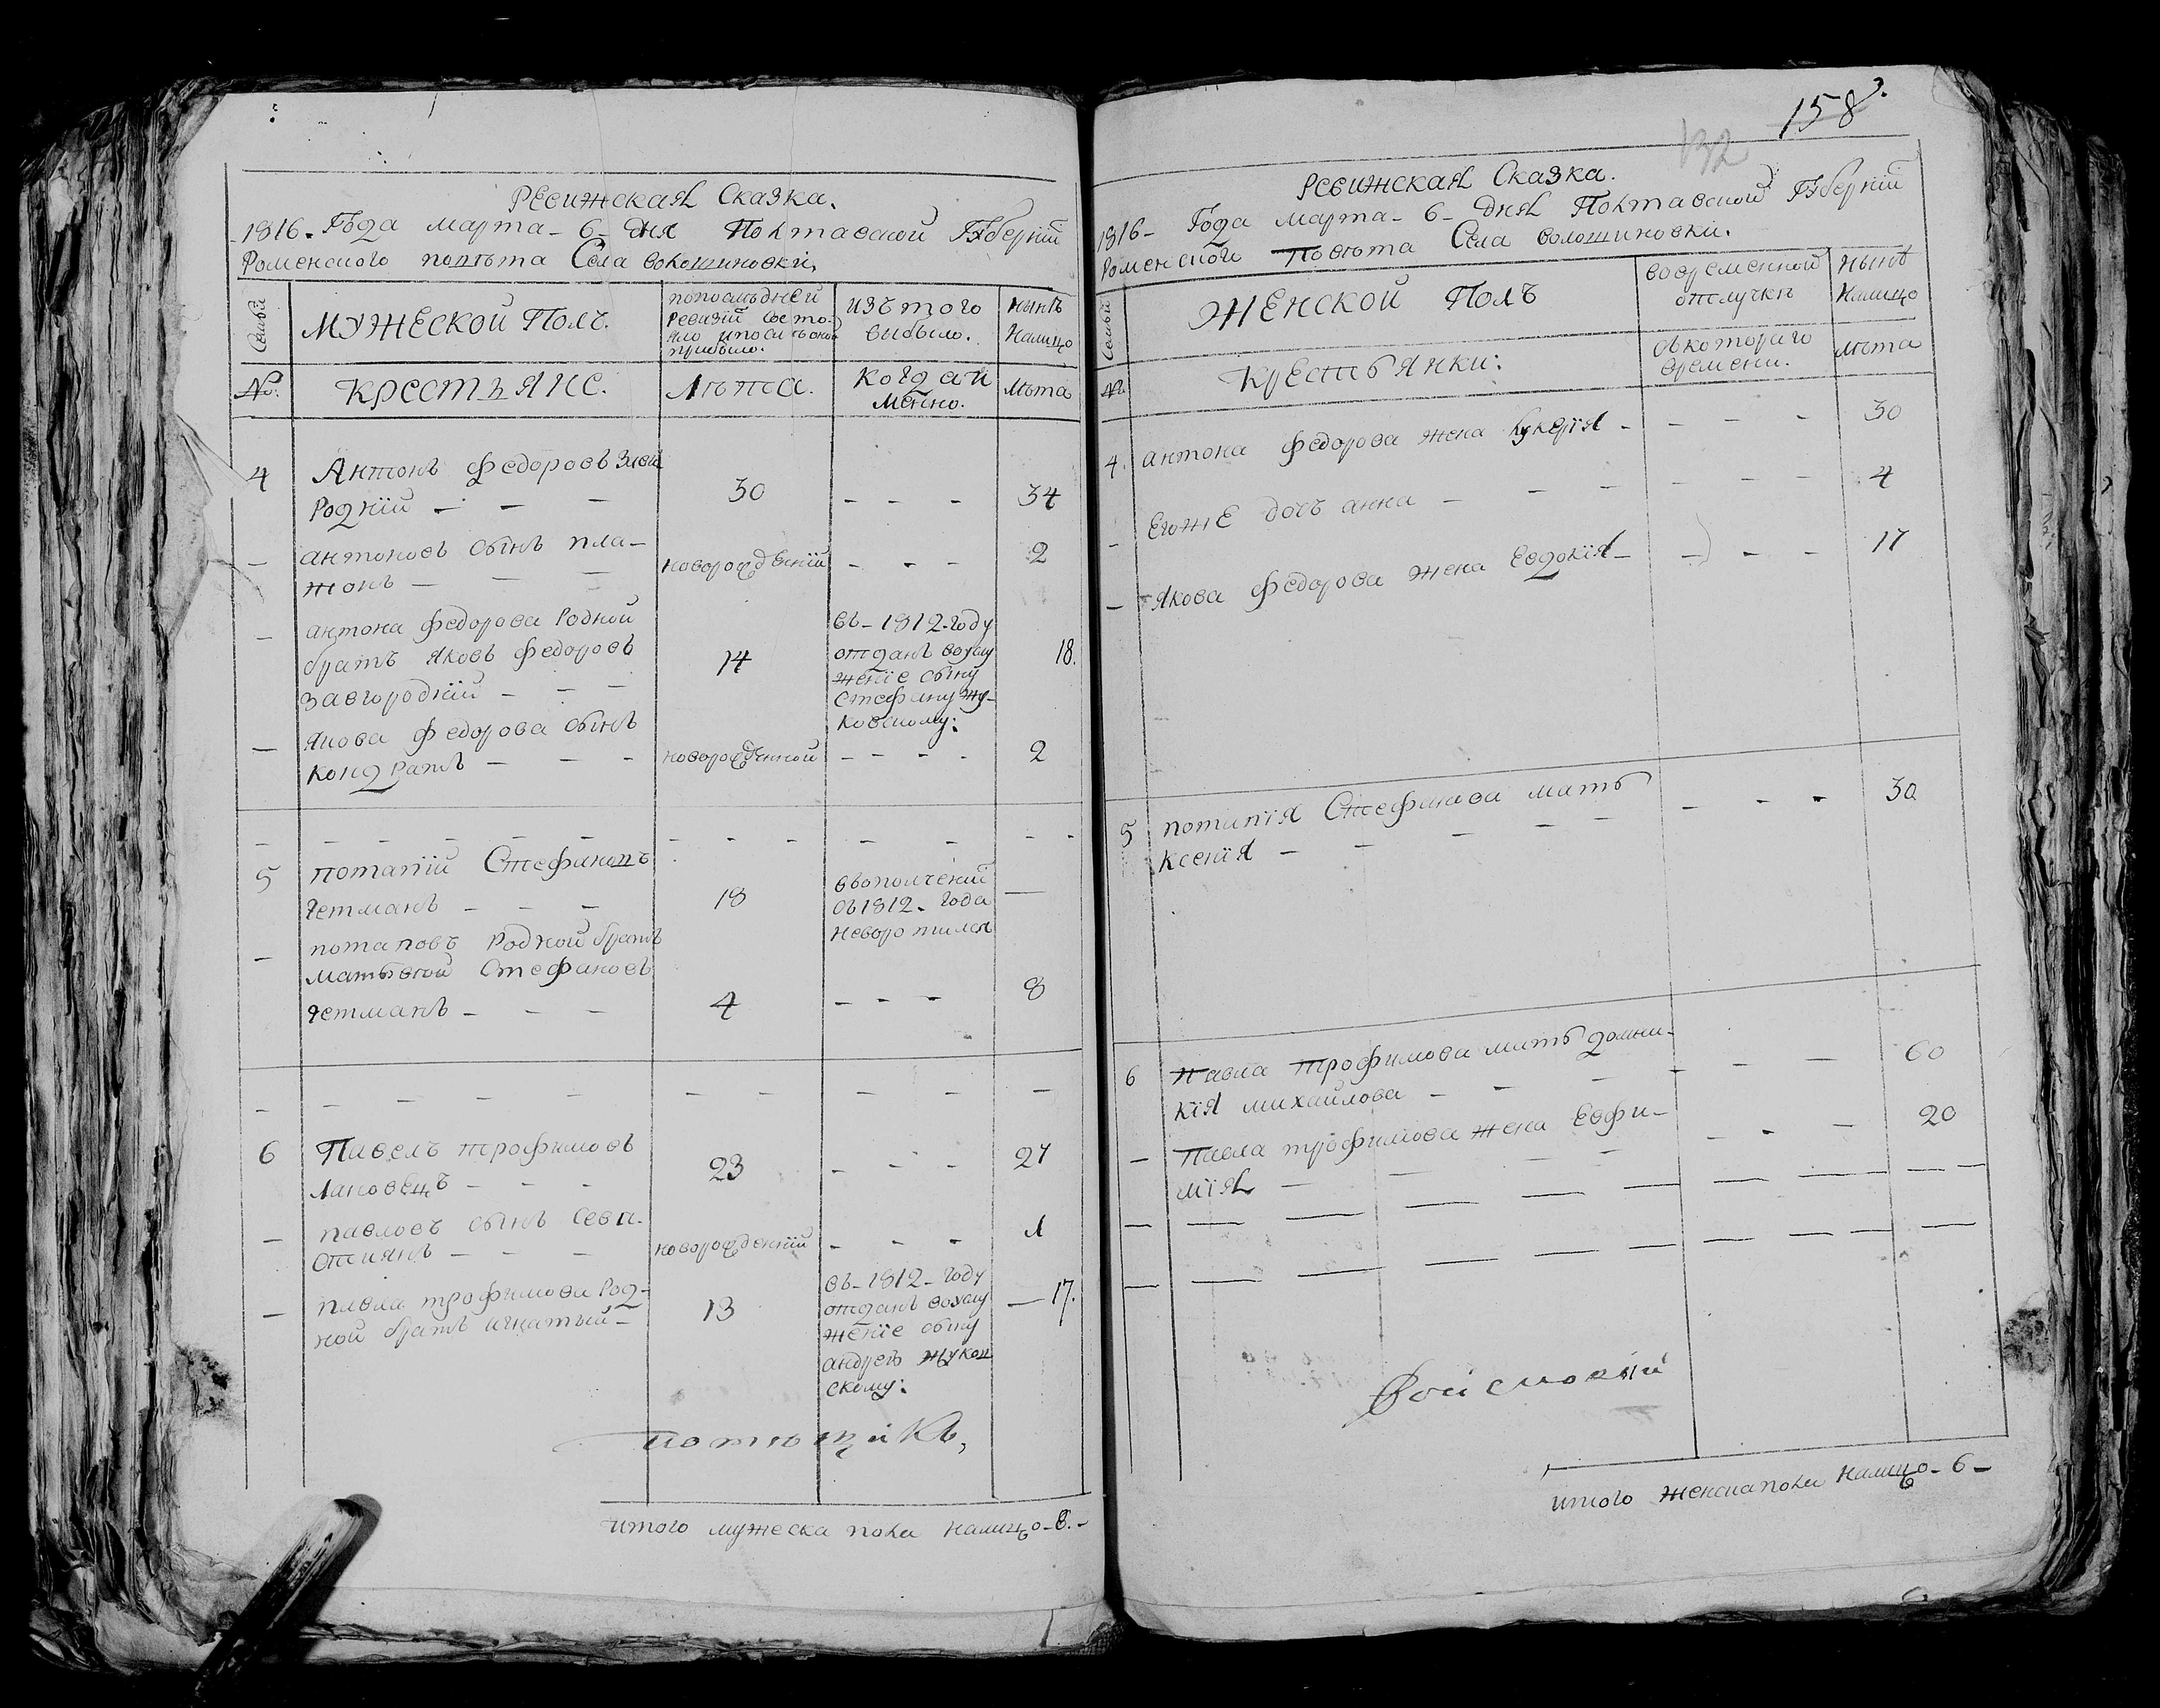 Ревижская Сказка.
1816. Года марта - 6 - дня Полтавской Губернїи
Роменского повѣта Села волошиновки,
Семьи
МУЖЕСКОЙ Полъ.
попослѣдней
Ревизїи состо-
яло ипослѣ оной
прибыло.
изъ того
выбыло.
нынѣ
Налицо
№.
крестьяне.
Лѣта.
когда и
менно.
Лѣта
4
Антонъ федоровъ Заго
Роднїй - - -
30
- - -
34
- антоновъ сынъ пла-
тонъ - - -
новорожденнїй
- - -
2
- антона федорова Родной
братъ яковъ федоровъ
завгороднїй - - -
14
въ - 1812 - году
отданъ воуслу
женїе сыну
Стефану Жу-
ковскому:
18.
- якова федорова сынъ
кондратъ - - -
новорожденной
- - - -
2
5
потапїй Стефановъ
гетманъ - - -
18
вополченїи
съ 1812 - года
неворотился
—
- потаповъ Родной братъ
матьвѣй Стефановъ
гетманъ - - -
4
- - -
8
6
Павелъ трофимовъ
лановецъ - - -
23
- - -
27
- павловъ сынъ Сева-
стиянъ - - -
новорожденнїй
- - -
1
- павла трофимова Род-
ной братъ игнатый -
13
въ - 1812 - году
отданъ воуслу
женїе сыну
андрею жуков
скому:
— 17.
потѣщикъ,
итого мужеска пола налицо - 8. -
158.
132
Ревижская Сказка.
1816 - Года марта - 6 - дня Полтавской Губернїи
Роменской Повѣта Села волошиновки.
Семьи
ЖЕНСКОЙ Полъ
вовременной
отлучкѣ
нынѣ
Налицо
№.
Крестьянки:
съкотораго
времени.
лѣта
4. антона федорова жена лукерїя - - - -
30
- Егоже дочь анна - - - - - -
4
- якова федорова жена Евдокїя - - - -
17
5 потапїя Стефанова мать
ксенїя - - - - -
- - -
30
6 Павла трофимова мать домни-
кїя михайлова - - -
- - —
60
- Павла трофимова жена Евфи-
мїя - - - -
- - —
20
итого женска пола налицо - 6 -